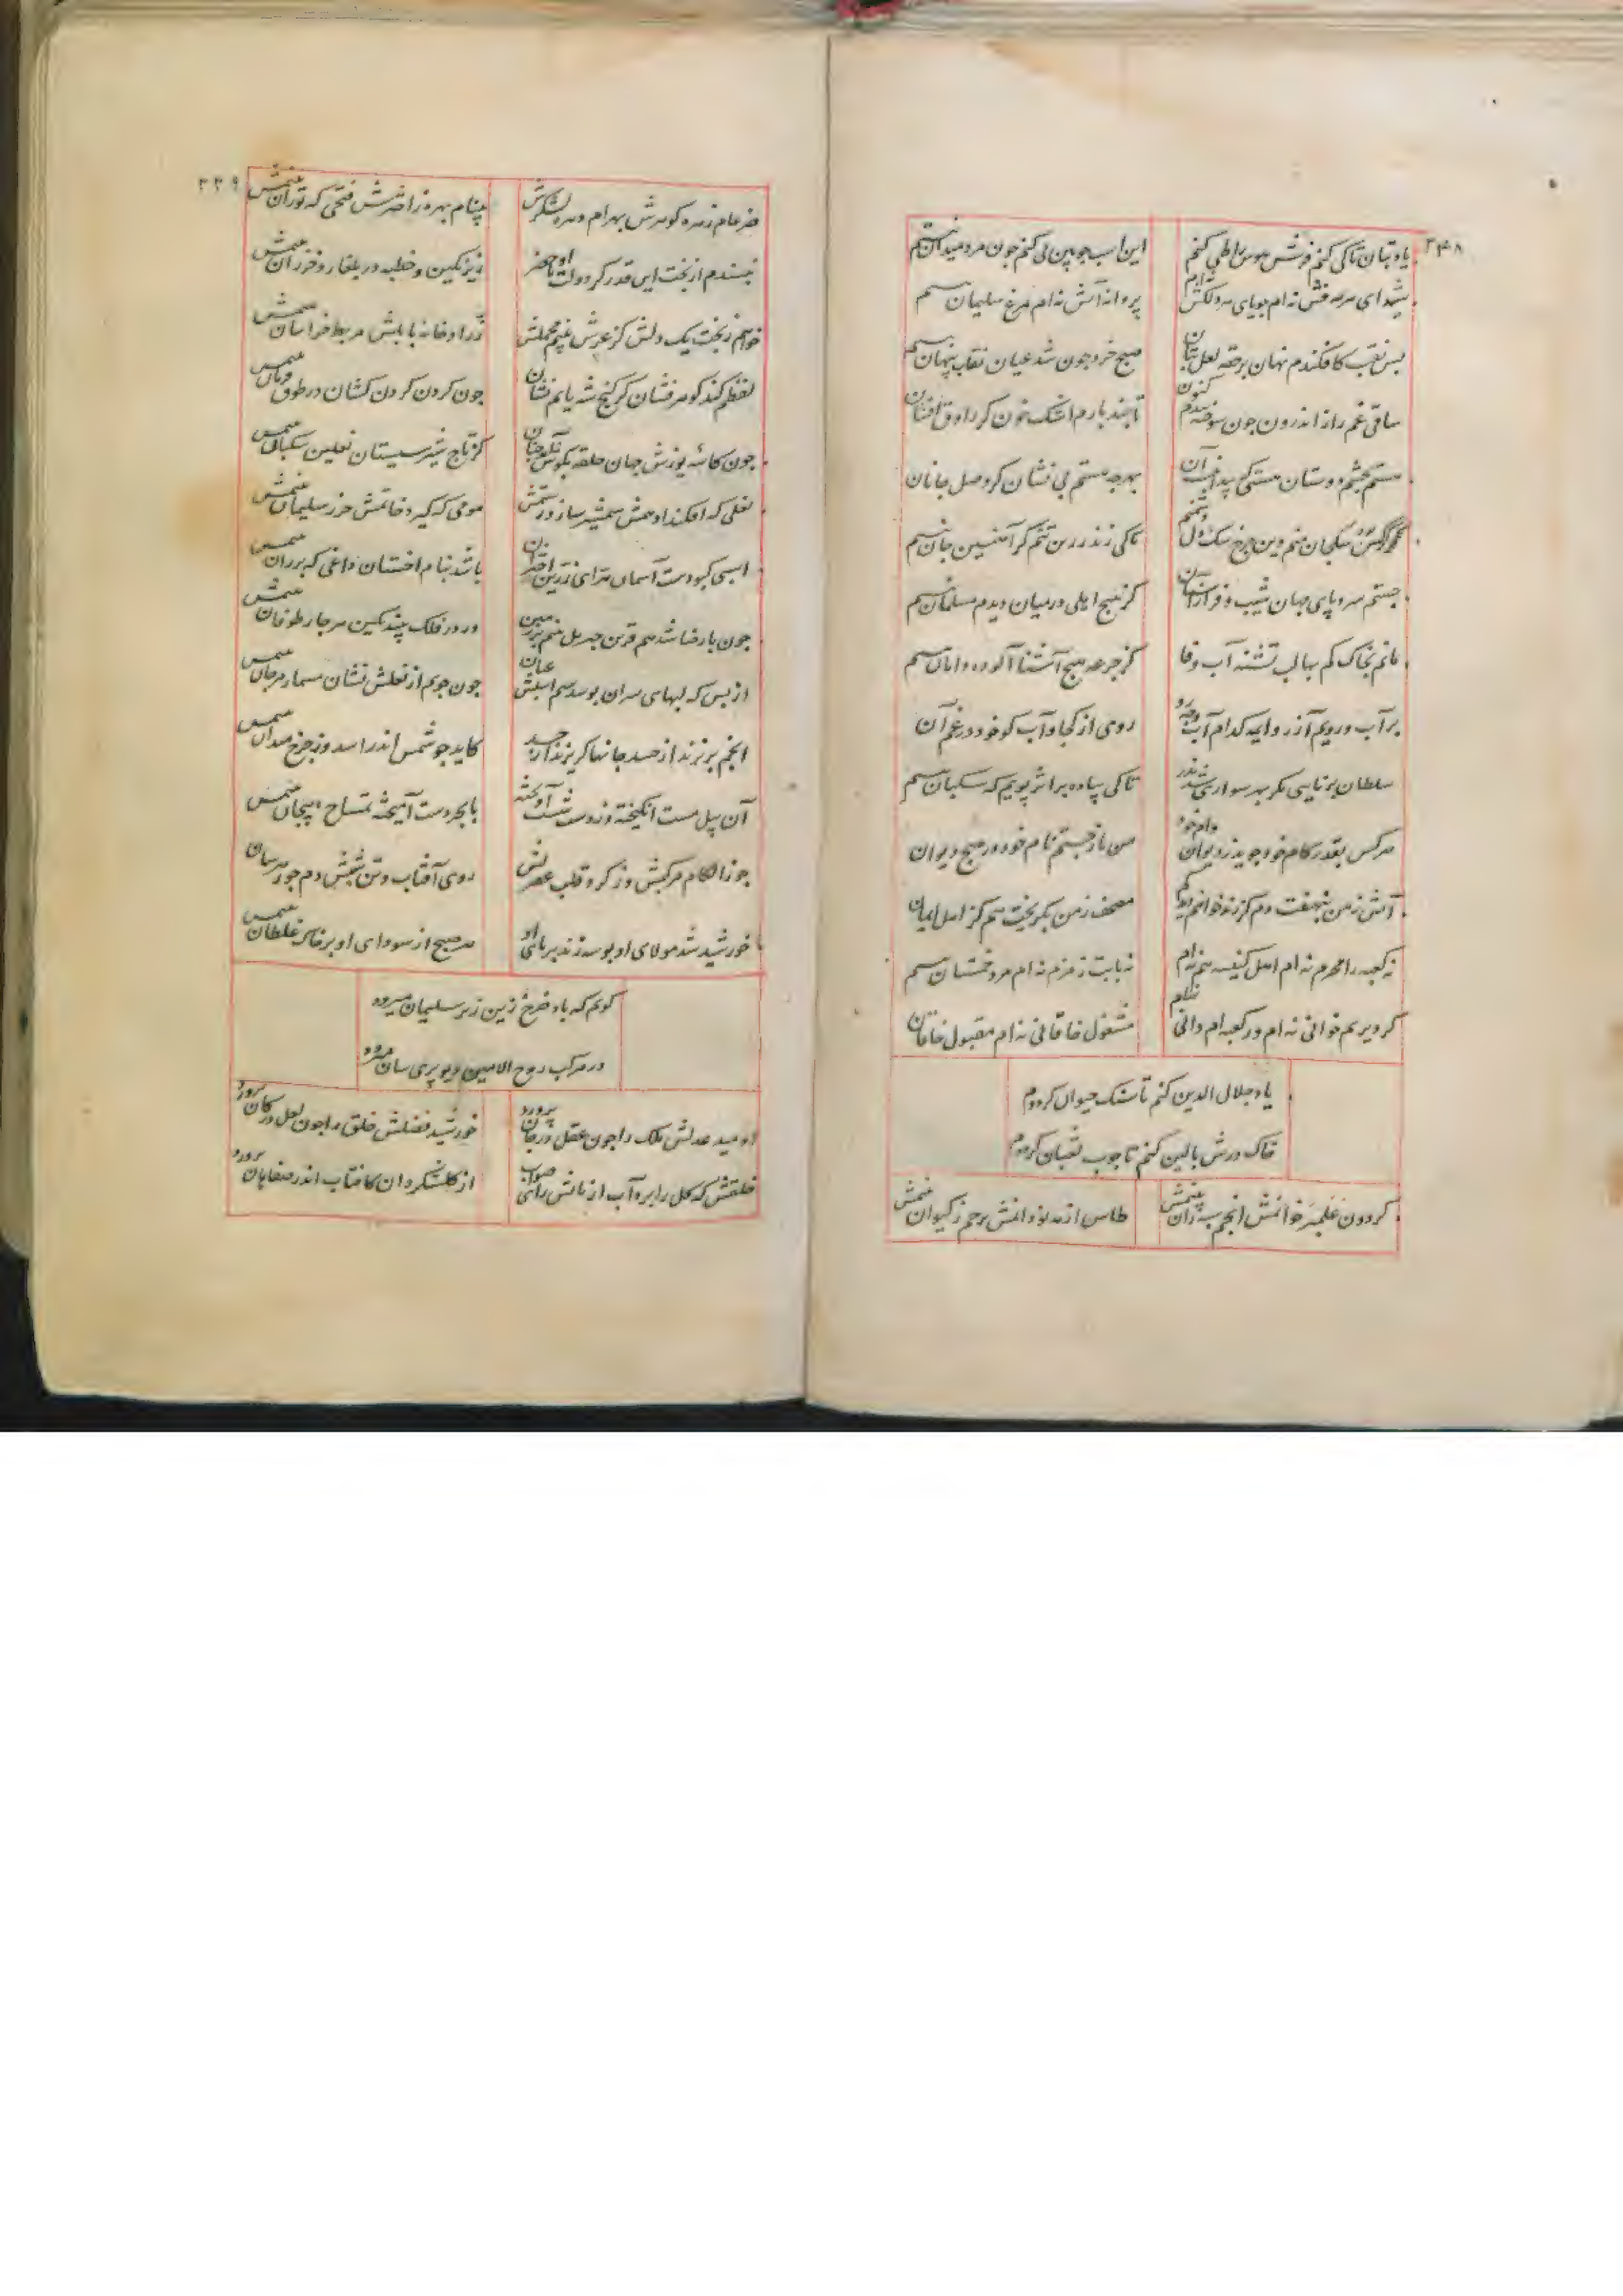 ۲۴۸
یاد بتان تاکی کنم فرش هوس را طی کنم این اسب چوبین پی کنم چون مرد میدان نیستم
شیدای هر مه‌وش نه‌ام جویای هر دلکش نه‌ام پروانه آتش نه‌ام مرغ سلیمان نیستم
بس نقب کافکندم نهان بر حقه لعل بتان صبح خرد چون شد عیان نقاب پنهان نیستم
ساقی غم را ز اندرون چون سوختم تا چند بارم اشک خون گر راوق افشان
مستم بچشم دوستان مستی پدید است آن بهرچه هستم بی نشان گر وصل جانان
سگجان منم وین چرخ سگ دل دشمنم تاکی زند زر بن تنم گر آهنین جان نیستم
جستم سر و پای جهان شیب و فراز آسمان گر هیچ اهلی در میان دیدم مسلمان نیستم
مانم بخاک کم بها لب تشنه آب وفا کز جرعه هیچ آشنا آلوده دامان نیستم
بر آب و رویم آرزو ایمه کدام آب و چه رو روی از کجا و آب کو خود در غم آن
سلطان برنایی مگر بهر سواری شد بدر تاکی پیاده بر اثر پویم که سگبان نیستم
هر کس بقدر کام خود جوید ز دیوان وام خود من باز جستم نام خود در هیچ دیوان
آتش ز من بنهفت دم گر زند خوانم لاجرم مصحف ز من بگریخت هم کز اهل ایمان
نه کعبه را محرم نه‌ام اهل کنیسه هم نه‌ام نه بابت زمزم نه‌ام مرد خمستان نیستم
گر دیریم خوانی نه‌ام ور کعبه‌ام دانی نه‌ام مشغول خاقانی نه‌ام مقبول خاقان
یاد جلال الدین کنم تا سنگ حیوان گرددم
خاک درش بالین کنم تا چوب ثعبان گرددم
گردون علم برخوانمش انجم سپه دان بینمش طاس از مه نو دانمش پرچم ز کیوان بینمش
۲۴۹
ضرغام زهره گوهرش بهرام دهره لشکرش پیغام بهره ز اخترش فتحی که توران بینمش
نپسندم از بخت این قدر کز دولت او ماحضر تیز تکین و خطبه در بلغار و خزران بینمش
خواهم ز بخت یک دلش کز عرش بینم محملش زر اد خانه بابلش مربط خراسان بینمش
لفظم کند گوهر فشان کز گنج شه یابم نشان چون گردن گردن کشان در طوق فرمان بینمش
چون کاسه یوزش جهان حلقه بگوش کز تاج شیر سیستان نعلین سگبان بینمش
نعلی که افکند ادهمش شمشیر سازد رستمش مومی که گیرد خاتمش حرز سلیمان بینمش
اسبی کبودست آسمان هرای زرین اختران باشد بنام اخستان داغی که بر ران بینمش
چون با رضا شد هم قرین جبریل بینم بر زمین ور در فلک بیند بکین هر چار طوفان بینمش
از بس که لبهای سران بوسد سم اسبش عیان چون جویم از نعلش نشان مسمار مرجان بینمش
انجم برزند از حسد جانها گریزند از جسد کاید چو شمس اندر اسد وز چرخ میدان بینمش
آن پیل مست انگیخته وز دست شست آویخته با بحر دست آمیخته تمساح پیچان بینمش
جوزا لگام مرکبش وز گرد قلب عقربش روی آفتاب و تن شبش دم جوزهرسان بینمش
خورشید شد مولای او بوسه زند بر پای او هر صبح از سودای او بر خاک غلطان بینمش
گویم که باد فرخ زین زیر سلیمان میرود
در مرکب روح الامین دیو پری سان میرود
امید عدلش ملک را چون عقل در جان پرورد خورشید فضلش خلق را چون لعل در کان پرورد
خلقش که گل را برد آب از دانش رای صواب از کلشکر دان کافتاب اندر صفاهان پرورد